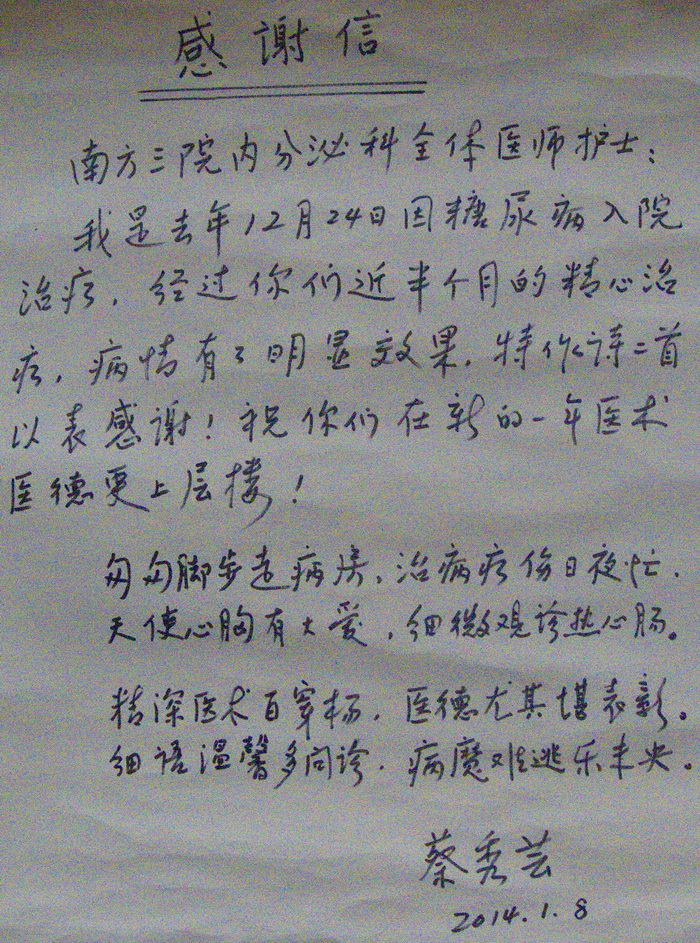 感谢信
南方三院内分泌科全体医师护士:
我是去年12月24日因糖尿病入院
治疗，经过你们近半个月的精心治
疗，病情有了明显效果，特作诗二首
以表感谢！祝你们在新的一年医术
医德更上层楼！
匆匆脚步走病房，治病疗伤日夜忙，
天使心胸有大爱，细微观诊热心肠。
精深医术百穿杨，医德尤其堪表彰。
细语温馨多问诊，病魔难逃乐未央。
蔡秀芸
2014.1.8